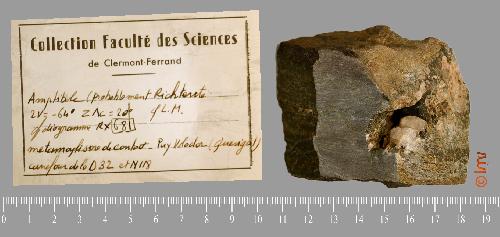 Collection Faculté des Sciences
de Clermont-Ferrand
Amphibole (Probablement Richterite
2V = -64° Z∧c = 20° cf L.M.
cf diagramme RX 681
métamorphisme de contact - Puy
carrefour de la D32 et N19
0 1 2 3 4 5 6 7 8 9 10 11 12 13 14 15 16 17 18 19